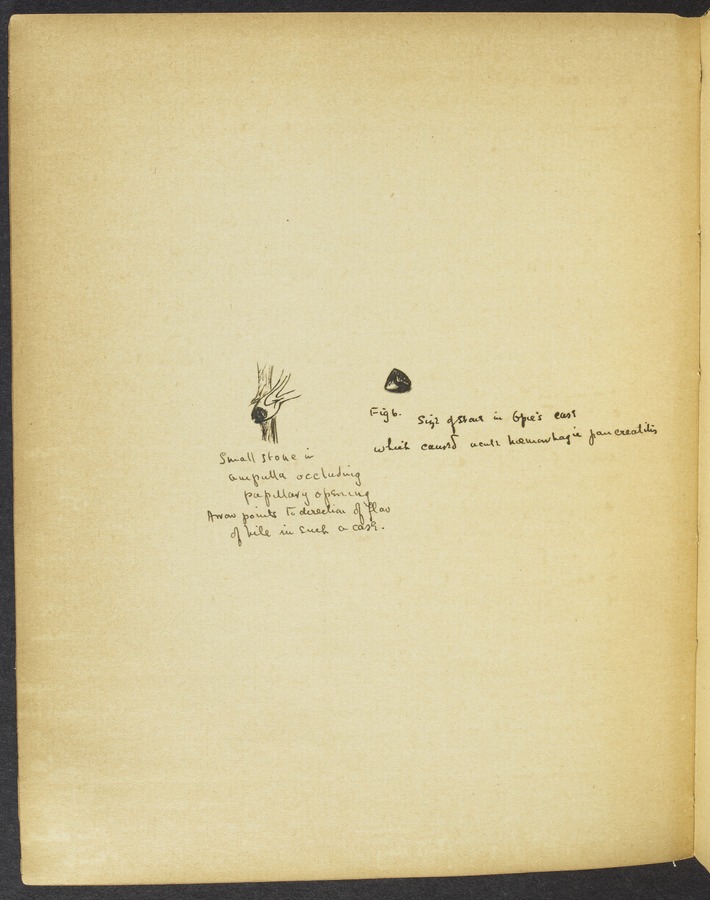 Small stone in
ampulla occluding
papillary opening
Arrow points to direction of flow
of bile in such a case.
Fig 6. Size of stone in Opie's case
which caused acute haemorrhagic pancreatitis